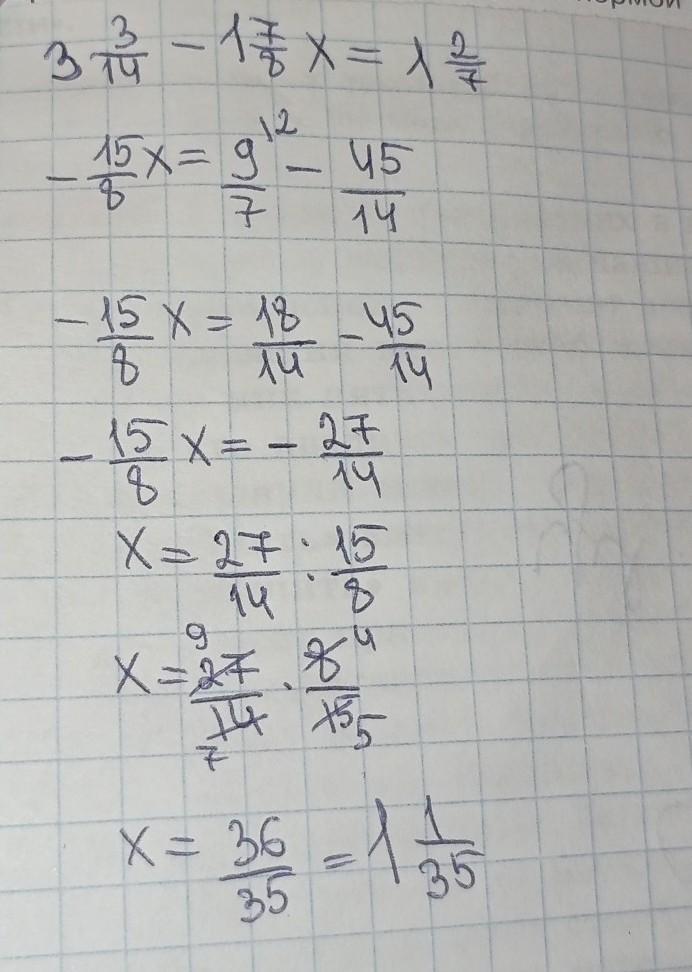 рмой
3 3/14 - 1 7/8 x = 1 2/7
- 15/8 x = 9/7 \2 - 45/14
- 15/8 x = 18/14 - 45/14
- 15/8 x = - 27/14
x = 27/14 : 15/8
x = 27/14 · 8/15 9 4 7 5
x = 36/35 = 1 1/35